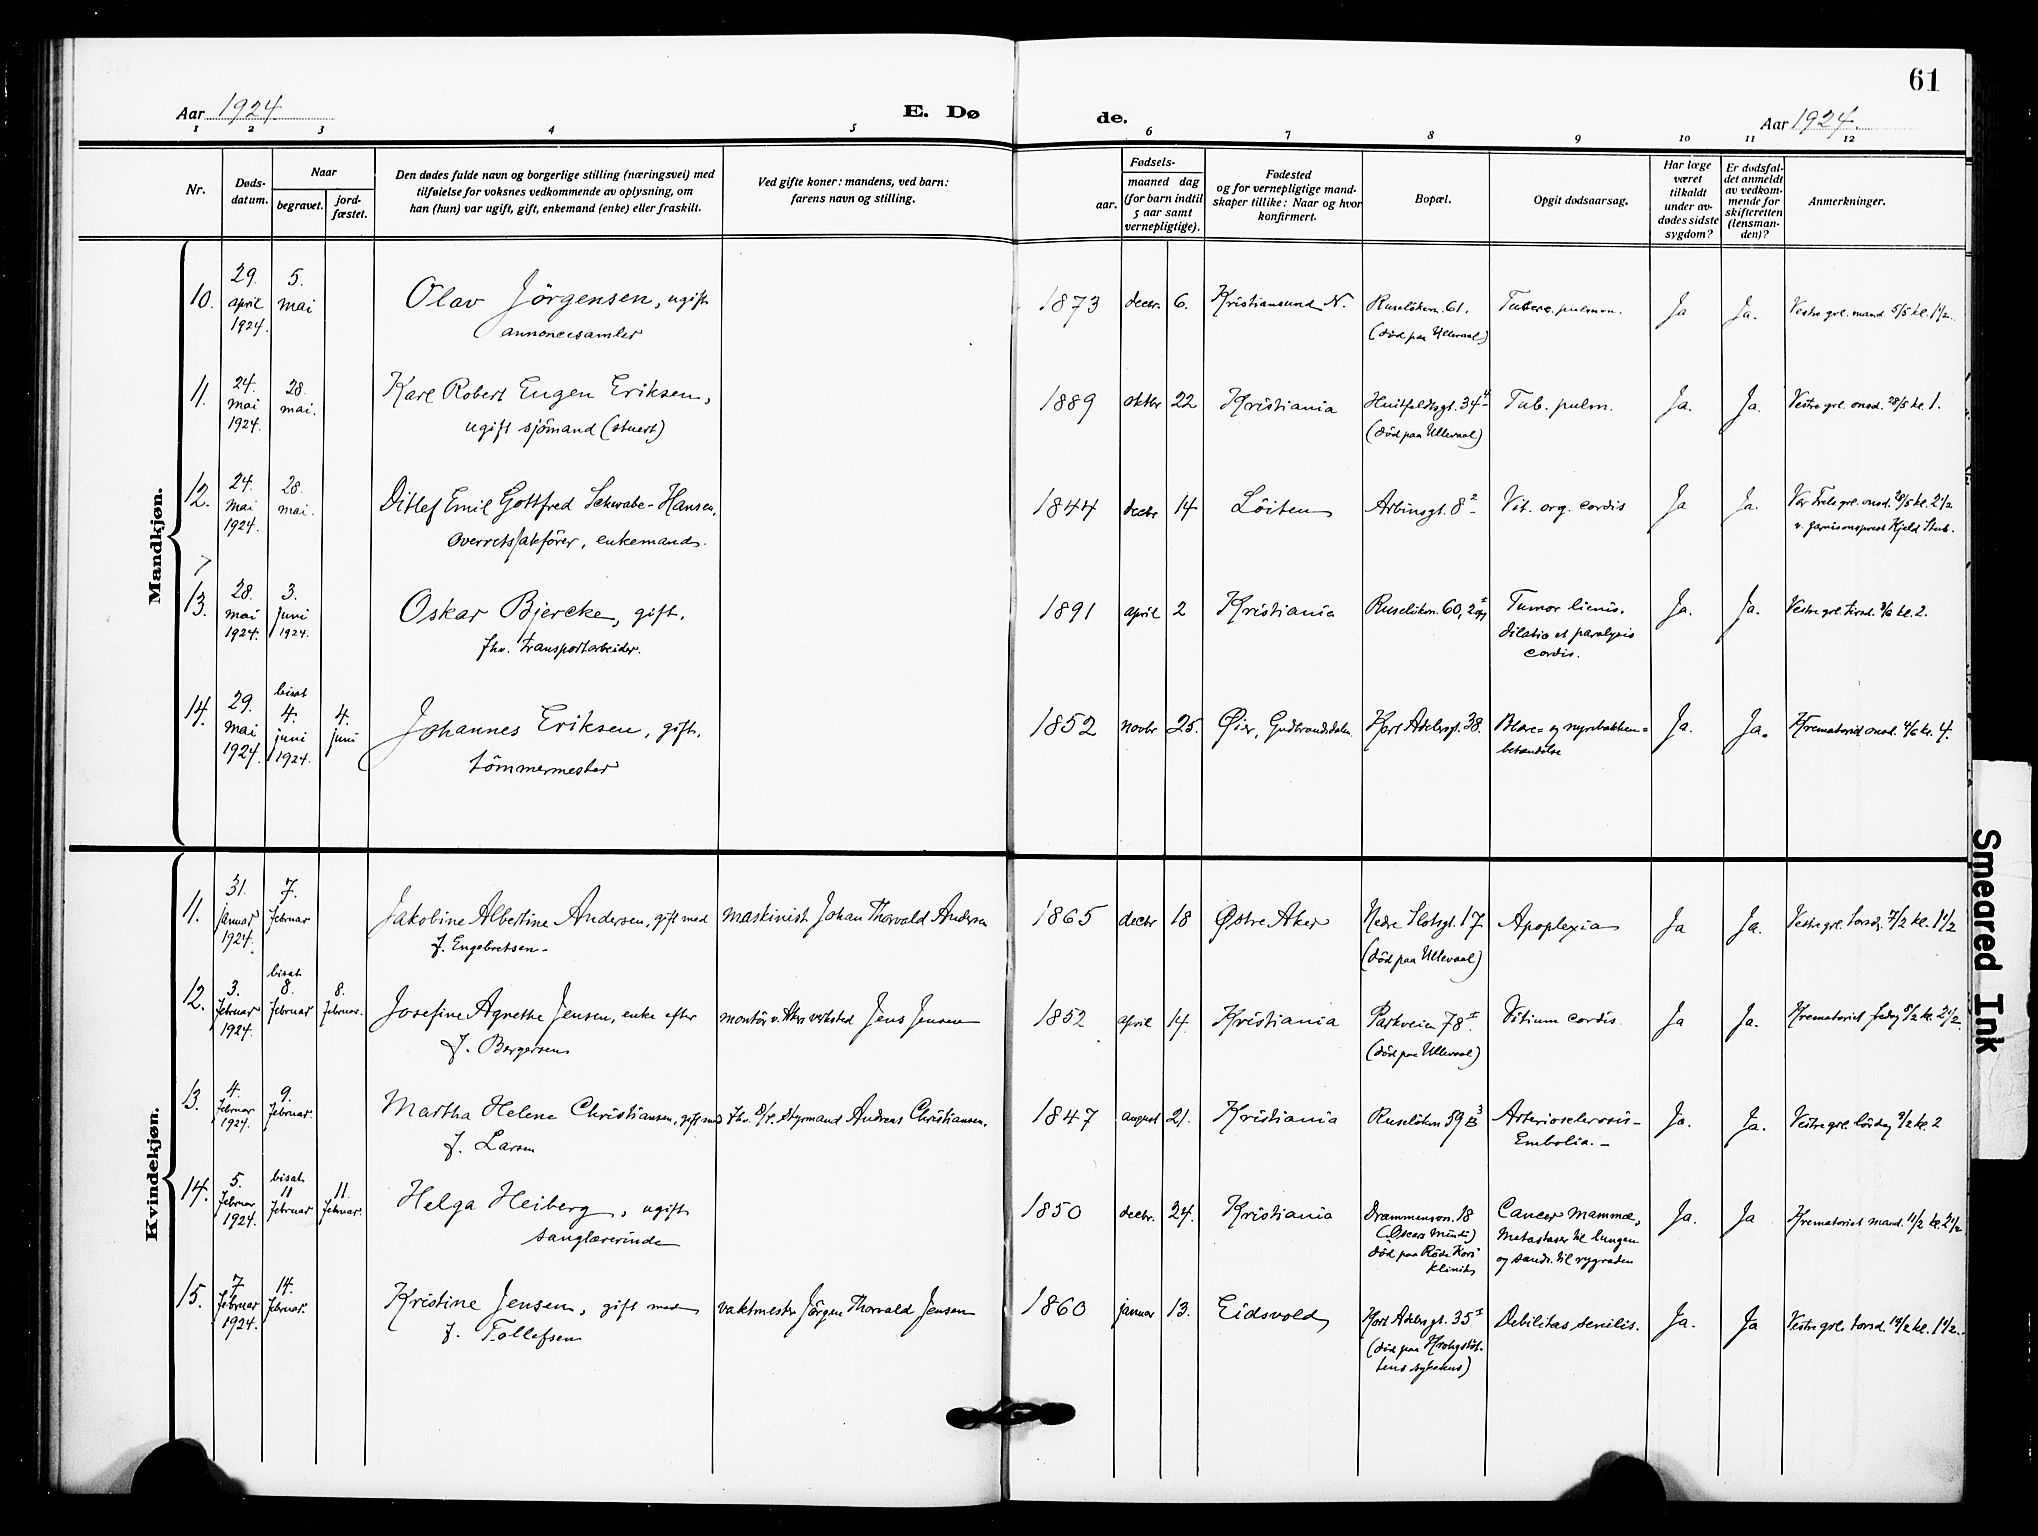 61
Aar 1924.
E. Dø
de.
Aar 1924.
1 2 3 4 5 6 7 8 9 10 11 12
Nr.
Døds-
datum.
Naar
begravet.
jord-
fæstet.
Den dødes fulde navn og borgerlige stilling (næringsvei) med
tilføielse for voksnes vedkommende av oplysning, om
han (hun) var ugift, gift, enkemand (enke) eller fraskilt.
Ved gifte koner: mandens, ved barn:
farens navn og stilling.
Fødsels-
aar.
maaned dag
(for barn indtil
5 aar samt
vernepligtige).
Fødested
og for vernepligtige mand-
skaper tillike: Naar og hvor
konfirmert.
Bopæl.
Opgit dødsaarsag.
Har læge
været
tilkaldt
under av-
dødes sidste
sygdom?
Er dødsfal-
det anmeldt
av vedkom-
mende for
skifteretten
(lensman-
den)?
Anmerkninger.
Mandkjøn.
10.
29.
april
1924.
5.
mai
Olav Jörgensen, ugift
annoncesamler
1873
decbr.
6.
Kristiansund N.
Ruselökvn. 61.
(död paa Ullevaal)
Tuberc. pulmon.
Ja
Ja.
Vestre grl. mand. 5/5 kl. 1 1/2.
11.
24.
mai
1924.
28.
mai.
Karl Robert Eugen Eriksen,
ugift sjömand (stuert)
1889
oktbr
22
Kristiania
Huitfeldtsgt. 34 4
(död paa Ullevaal)
Tub. pulm.
Ja.
Ja.
Vestre grl. onsd. 28/5 kl. 1.
12.
24.
mai
1924.
28.
mai.
Ditlef Emil Gottfred Schwabe-Hansen,
overretssakförer, enkemand.
1844
decbr
14
Löiten
Arbinsgt. 8 2
Vit. org. cordis
Ja
Ja.
Vor Frels grl. onsd. 28/5 kl. 2 1/2
v. garnisonsprest Kjeld Stub.
13.
28.
mai
1924.
3.
juni
1924.
Oskar Bjercke, gift.
fhv. transportarbeider.
1891
april
2
Kristiania
Ruselökvn. 60,
Tumor lienis.
dilatio et paralysis
cordis.
Ja.
Ja.
Vestre grl. tirsd. 3/6 kl. 2.
14.
29.
mai
1924.
bisat
4.
juni
1924.
4.
juni
Johannes Eriksen, gift.
tömmermester
1852
novbr
25.
Öier, Gudbrandsdalen.
Kort Adelersgt. 38.
Blære- og nyrebækken-
betændelse
Ja.
Ja.
Krematoriet onsd. 4/6 kl. 4.
Kvindekjøn.
11.
31.
januar
1924.
7.
februar
Jakobine Albertine Andersen, gift med
f. Engebretsen
maskinist Johan Thorvald Andersen
1865
decbr
18
Østre Aker
Nedre Slotsgt. 17
(död paa Ullevaal)
Apoplexia
Ja
Ja.
Vestre grl. torsd. 7/2 kl. 1 1/2
12.
3.
februar
1924.
bisat
8.
februar
8.
februar.
Josefine Agnethe Jensen, enke efter
f. Borgersen
montör v. Akers verksted Jens Jensen
1852
april
14.
Kristiania
Parkveien 78 I.
(död paa Ullevaal)
Vitium cordis.
Ja
Ja.
Krematoriet fredag 8/2 kl. 2 1/2
13.
4.
februar
1924.
9.
februar.
Martha Helene Christiansen, gift med
f. Larsen
fhv. styrmand Andreas Christiansen.
1847
august
21.
Kristiania
Ruselökvn 59 B 3
Arteriosclerosis-
Embolia.-
Ja.
Ja.
Vestre grl. lördag 9/2 kl. 2
14.
5.
februar
1924.
bisat
11
februar
11.
februar.
Helga Heiberg, ugift
sanglærerinde
1850
decbr.
24.
Kristiania
Drammensvn. 18
(Oscars Minde)
död paa Röde Kors
klinik
Cancer mammæ,
Metastaser til lungen
og sands. til rygraden
Ja.
Ja
Krematoriet mand. 11/2 kl. 2 1/2
15.
7
februar
1924.
14.
februar.
Kristine Jensen, gift med
f. Tollefsen
vaktmester Jörgen Thorvald Jensen
1860
januar
13.
Eidsvold
Kort Adelersgt. 35 I
(död paa Krohgstöt-
tens sykehus)
Debilitas senilis.
Ja.
Ja
Vestre grl. torsd. 14/2 kl. 1 1/2.
Smeared Ink